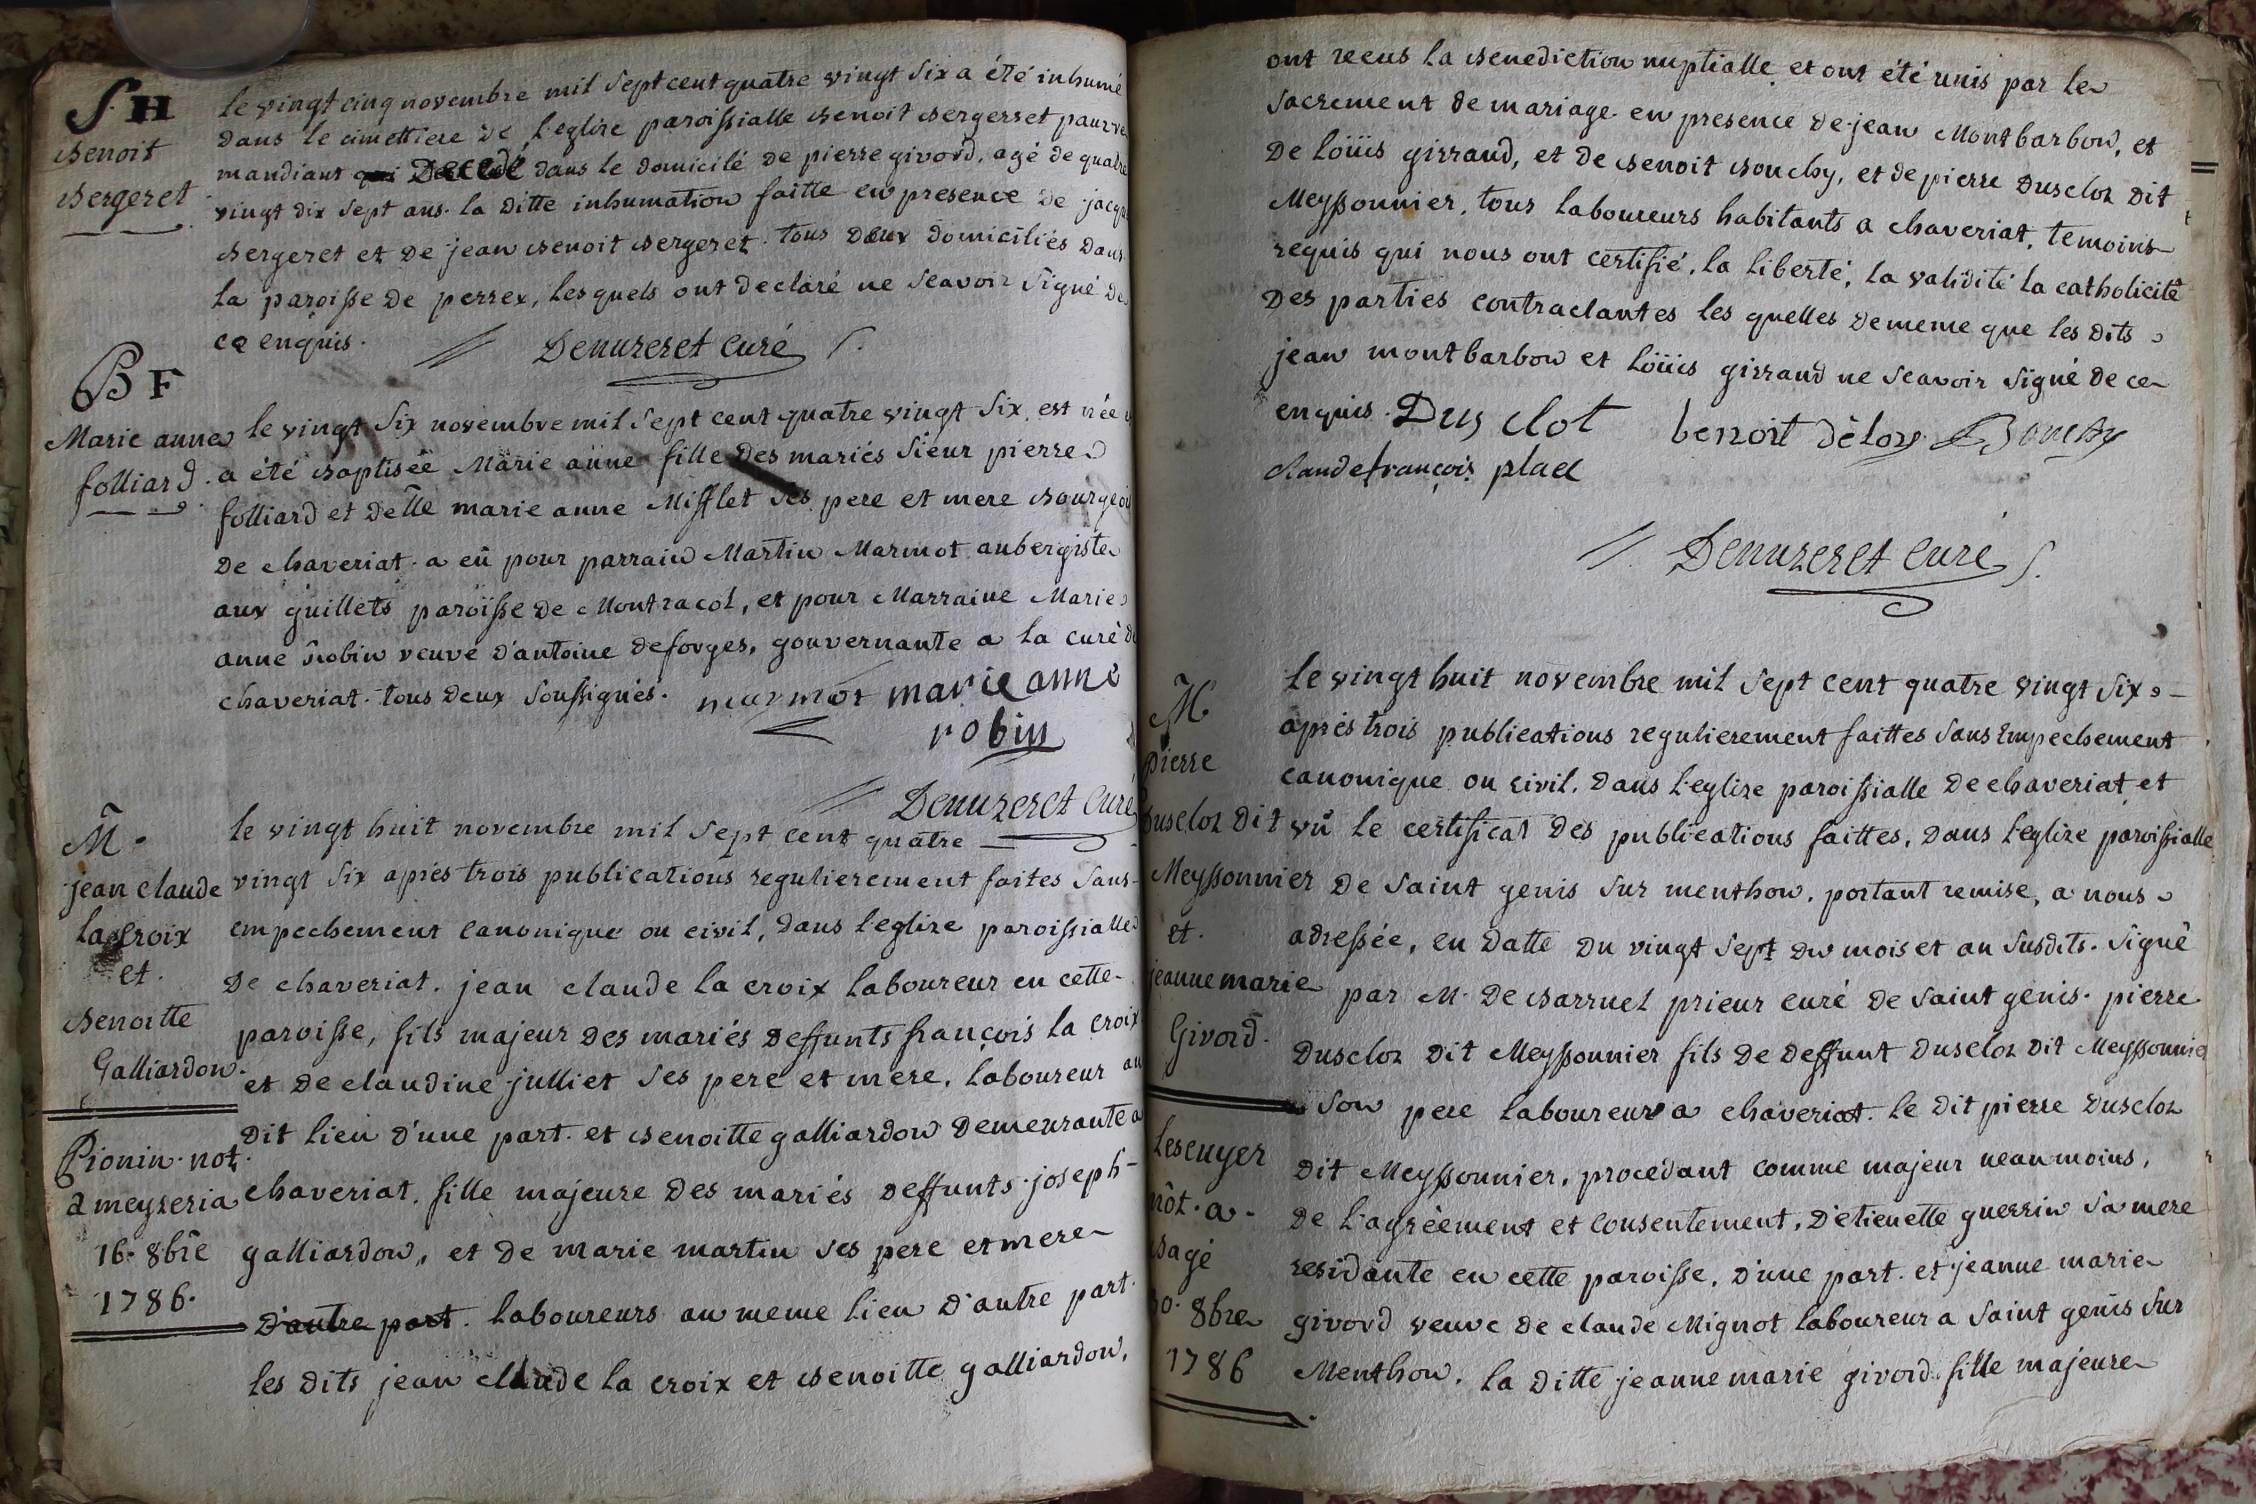 S H
Benoit
Bergeret
le vingt cinq novembre mil sept cent quatre vingt six a été inhumé
dans le cimettiere de l'eglize paroissialle benoit bergerret pauvre
mandiant qui Decedé dans le domicilé de pierre givord, agé de quatre
vingt dix sept ans. la ditte inhumation faitte en presence de jacque
bergeret et de jean benoit bergeret. tous deux domiciliés dans
la paroisse de perrex, lesquels ont declaré ne scavoir signé de
ce enquis. Denuzeret curé
B F
Marie anne
folliard.
le vingt six novembre mil sept cent quatre vingt six, est née
a été baptisée Marie anne fille des mariés sieur pierre
folliard et delle marie anne Mifflet ses pere et mere bourgeois
de chaveriat. a eû pour parrain Martin Marmot aubergiste
aux guillets paroisse de Montracol, et pour Marraine Marie
anne robin veuve d'antoine deforges, gouvernante a la curè de
chaveriat. tous deux soussignés. marmot marie anne
robin
Denuzeret curé
M.
jean claude
la croix
et.
benoitte
Galliardon.
Pionin not.
a meyzeria
16. 8bre
1786.
le vingt huit novembre mil sept cent quatre
vingt six aprés trois publications regulierement faites sans
empechement canonique ou civil, dans l'eglize paroissialle
de chaveriat. jean claude la croix laboureur en cette
paroisse, fils majeur des mariés deffunts françois la croix
et de claudine julliet ses pere et mere, laboureur au
dit lieu d'une part. et benoitte galliardon demeurante a
chaveriat, fille majeure des mariés deffunts joseph
galliardon, et de marie martin ses pere et mere
d'autre part. laboureurs au meme lieu d'autre part.
les dits jean claude la croix et benoitte galliardon,
ont recus la benediction nuptialle et ont été unis par le
sacrement de mariage en presence de jean Montbarbon, et
de loüis girraud, et de benoit bouchy, et de pierre duscloz dit
Meyssonnier, tous laboureurs habitants a chaveriat, temoins
requis qui nous ont certifié, la liberté, la validité la catholicité
des parties contractantes les quelles dememe que les dits
jean montbarbon et loüis girraud ne scavoir signé de ce
enquis. Dusclot benoit délorz Bouchy
claudefrançois place
Denuzeret curé
M
pierre
duscloz dit
Meyssonnier
et.
jeanne marie
Givord.
Lescuyer
nôt. a
bagé
30. 8bre
1786
le vingt huit novembre mil sept cent quatre vingt six
aprés trois publications regulierement faittes sans empechement
canonique ou civil. dans l'eglize paroissialle de chaveriat et
vû le certificat des publications faittes, dans l'eglize paroissialle
de saint genis sur menthon, portant remise, a nous
adressée, en datte du vingt sept du mois et an susdits. signé
par M. de barruel prieur curé de saint genis. pierre
duscloz dit Meyssonnier fils de deffunt duscloz dit Meyssonnier
son pere laboureur a chaveriat. le dit pierre duscloz
dit Meyssonnier, procédant comme majeur neanmoins,
de l'agréement et consentement, d'etienette guerrin sa mere
residante en cette paroisse, d'une part. et jeanne marie
givord veuve de claude Mignot laboureur a saint genis sur
Menthon. la ditte jeanne marie givord fille majeure